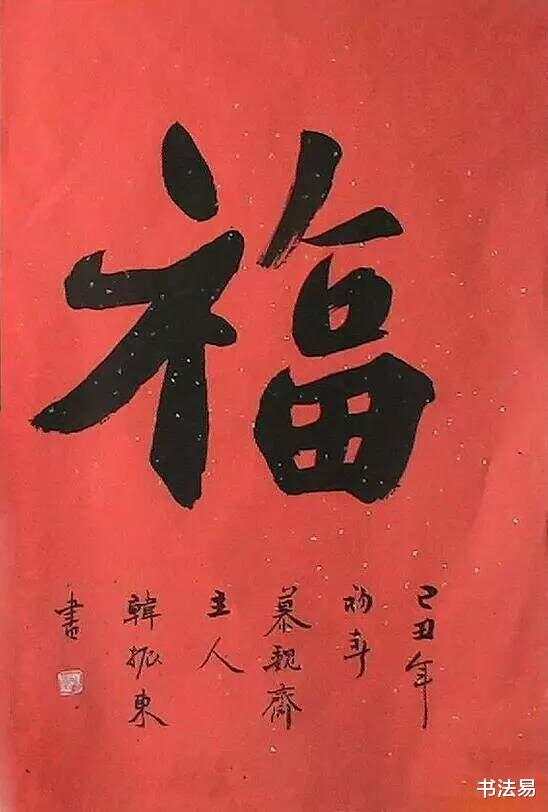 福
己丑年
初春
慕魏齋
主人
韓振東
書
书法易